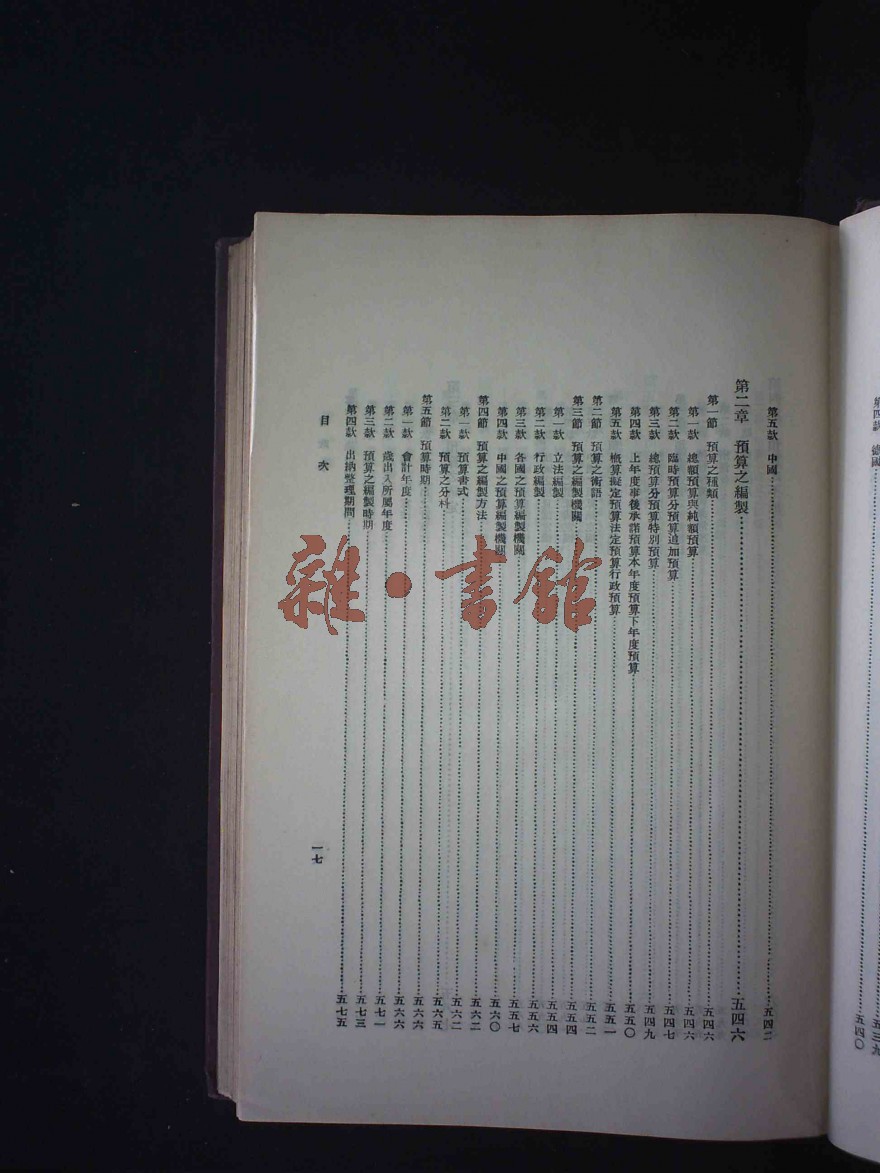 五三九
第四款 德國……五四〇
第五款 中國……五四二
第二章 預算之編製……五四六
第一節 預算之種類……五四六
第一款 總額預算與純額預算……五四六
第二款 臨時預算分預算追加預算……五四七
第三款 總預算分預算特別預算……五四九
第四款 上年度事後承諾預算本年度預算下年度預算……五五〇
第五款 概算擬定預算法定預算行政預算……五五一
第二節 預算之術語……五五二
第三節 預算之編製機關……五五四
第一款 立法編製……五五四
第二款 行政編製……五五六
第三款 各國之預算編製機關……五五七
第四款 中國之預算編製機關……五六〇
第四節 預算之編製方法……五六二
第一款 預算書式……五六二
第二款 預算之分科……五六五
第五節 預算時期……五六六
第一款 會計年度……五六六
第二款 歲出入所屬年度……五七一
第三款 預算之編製時期……五七三
第四款 出納整理期間……五七五
目次
一七
雜·書館